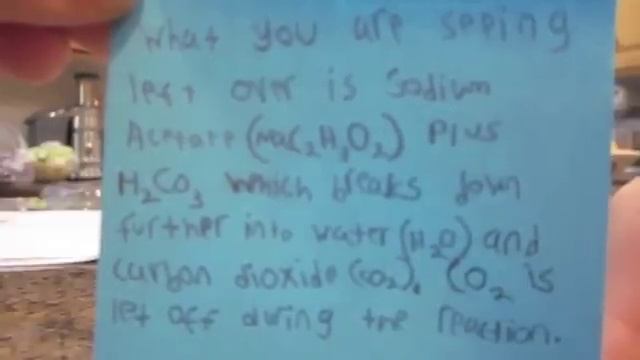 What you are seeing
left over is Sodium
Acetate (NaC₂H₃O₂) Plus
H₂CO₃ which breaks down
further into water (H₂O) and
carbon dioxide (CO₂). CO₂ is
let off during the reaction.